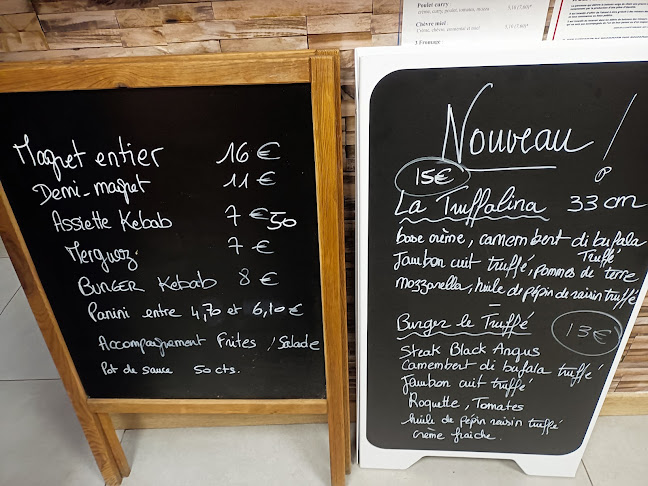 Poulet curry
Chèvre miel
3 Fromage
Maquet entier 16 €
Demi-maquet 11 €
Assiette Kebab 7 € 50
Merguez 7 €
BURGER Kebab 8 €
Panini entre 4,70 et 6,10 €
Accompagnement Frites / Salade
Pot de sauce 50 cts.
Nouveau !
15€
La Truffalina 33 cm
base crème, camembert di bufala
Truffé
Jambon cuit truffé, pommes de terre
mozzarella, huile de pépin de raisin truffé
Burger le Truffé
13€
Steak Black Angus
Camembert di bufala truffé
Jambon cuit truffé
Roquette, Tomates
huile de pépin raisin truffé
crème fraiche.